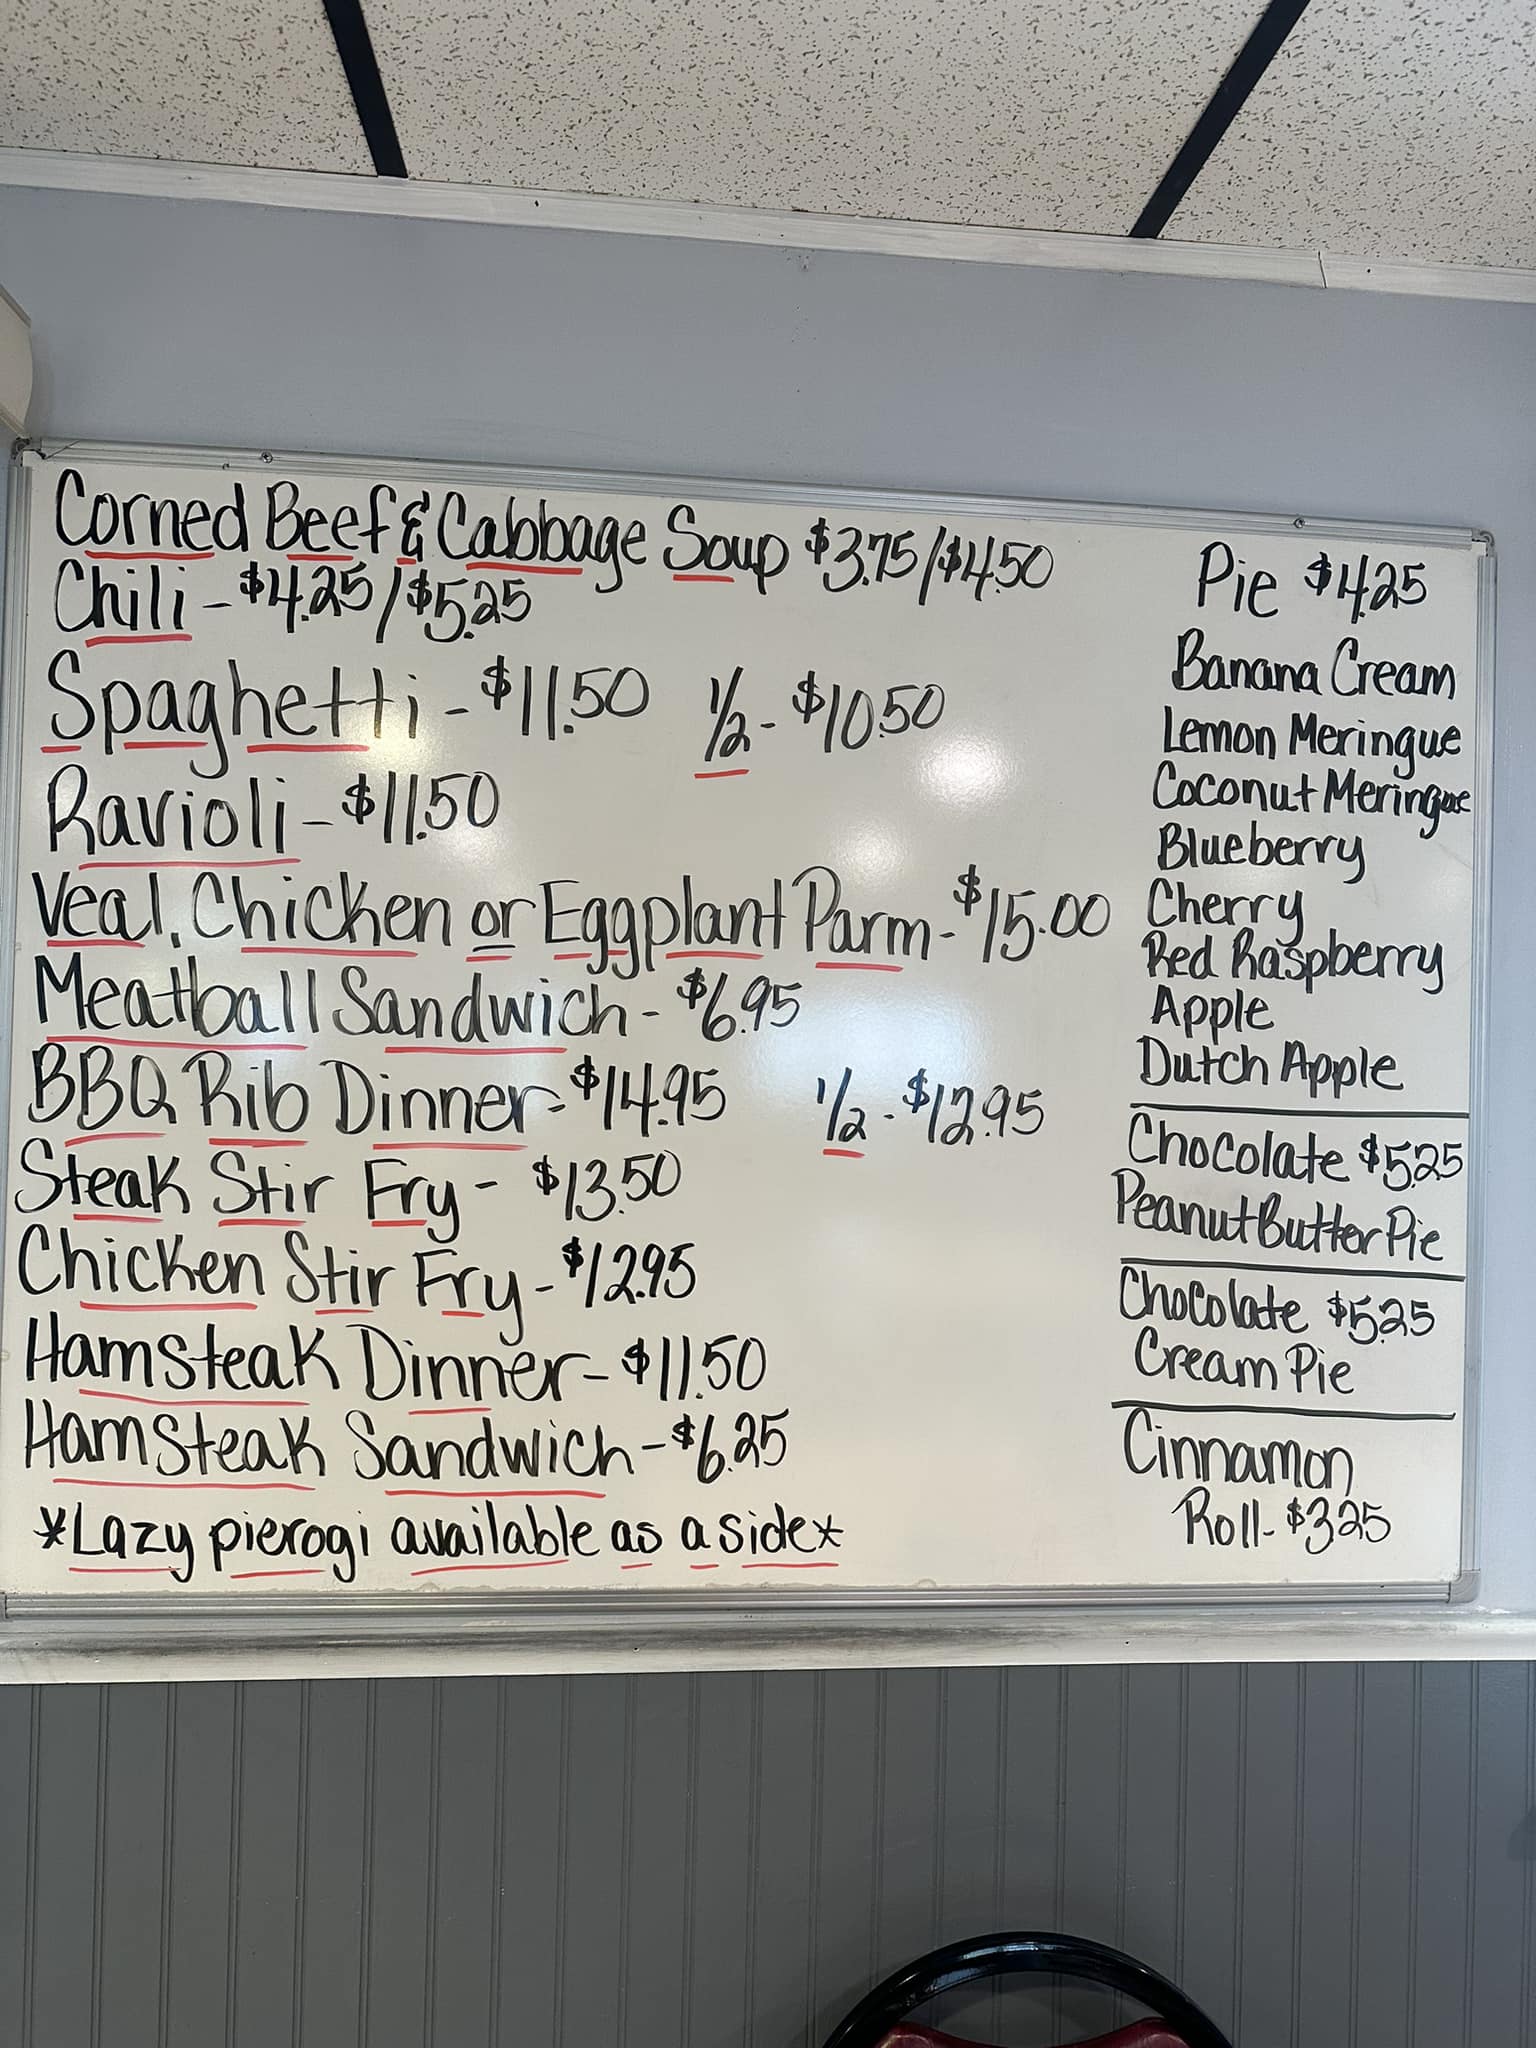 Corned Beef & Cabbage Soup $3.75/$4.50
Chili - $4.25/$5.25
Spaghetti - $11.50 1/2 - $10.50
Ravioli - $11.50
Veal, Chicken or Eggplant Parm - $15.00
Meatball Sandwich - $6.95
BBQ Rib Dinner - $14.95 1/2 - $12.95
Steak Stir Fry - $13.50
Chicken Stir Fry - $12.95
Hamsteak Dinner - $11.50
Hamsteak Sandwich - $6.25
*Lazy pierogi available as a side*
Pie $4.25
Banana Cream
Lemon Meringue
Coconut Meringue
Blueberry
Cherry
Red Raspberry
Apple
Dutch Apple
Chocolate $5.25
Peanut Butter Pie
Chocolate $5.25
Cream Pie
Cinnamon
Roll - $3.25